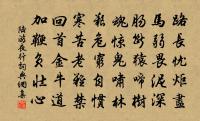 路長忧炬盡
馬弱畏泥深
腸斷猿啼樹
魂驚鬼嘯林
艱危窮自慣
寒苦老難禁
回首金牛道
加鞭負壯心
陸游夜行詞典網集